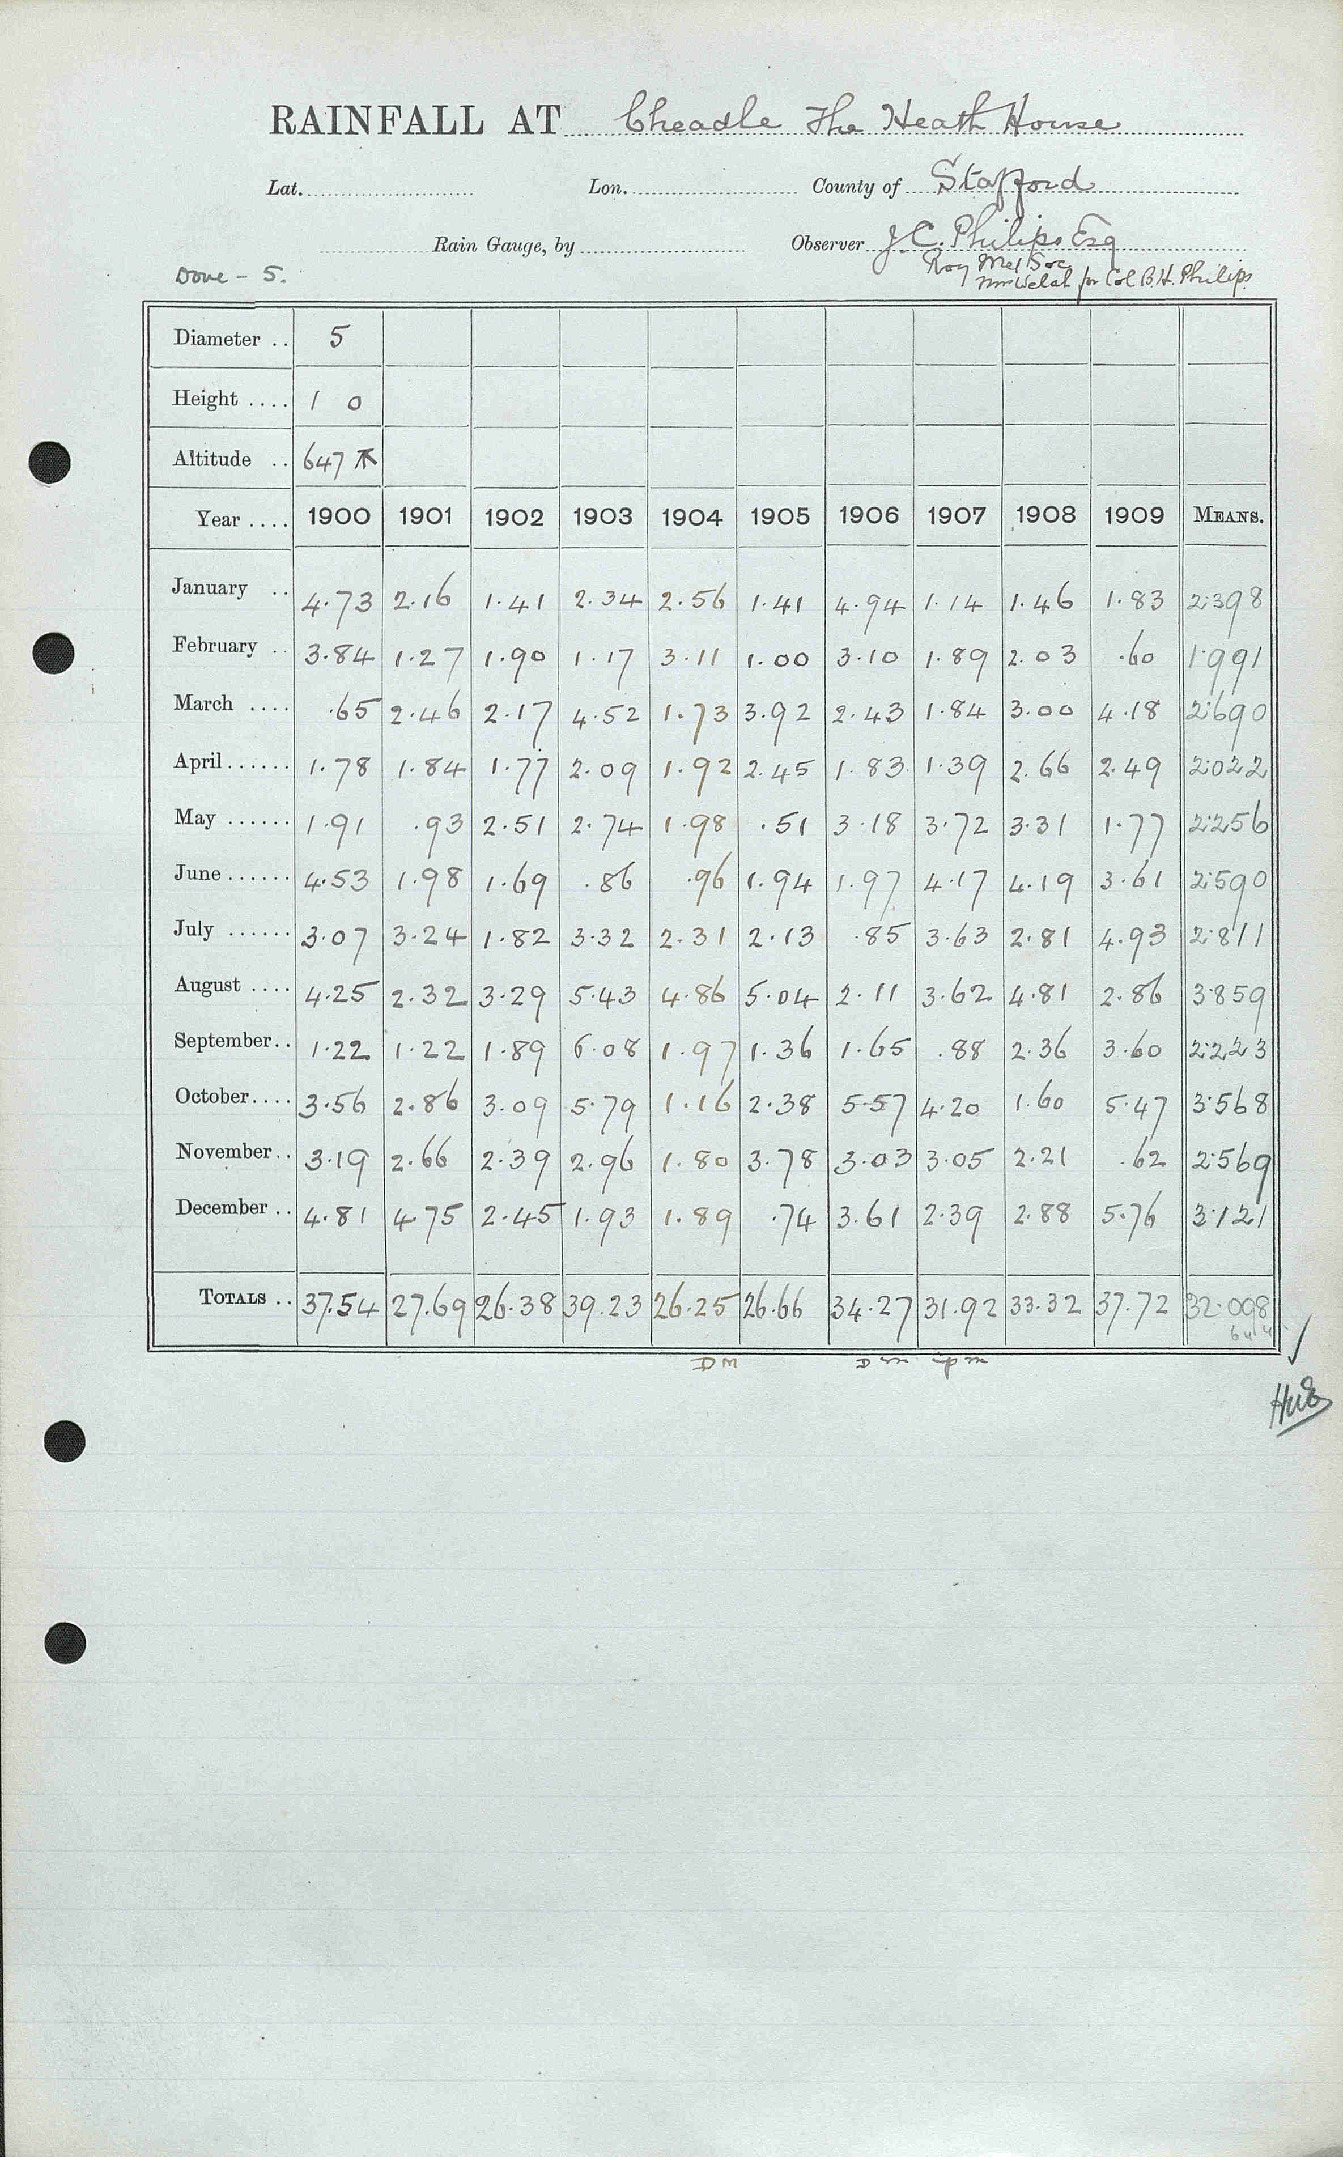 RAINFALL AT Cheadle The Heath House
Lat. Lon. County of Stafford
Rain Gauge, by Observer J.C. Philips Esq
Roy Met Soc
Dove - 5. Welch for Col B.H. Philips
Diameter .. 5
Height .... 1 0
Altitude .. 647
Year .... 1900 1901 1902 1903 1904 1905 1906 1907 1908 1909 MEANS.
January .. 4.73 2.16 1.41 2.34 2.56 1.41 4.94 1.14 1.46 1.83 2.398
February .. 3.84 1.27 1.90 1.17 3.11 1.00 3.10 1.89 2.03 .60 1.991
March .... .65 2.46 2.17 4.52 1.73 3.92 2.43 1.84 3.00 4.18 2.690
April...... 1.78 1.84 1.77 2.09 1.92 2.45 1.83 1.39 2.66 2.49 2.022
May ...... 1.91 .93 2.51 2.74 1.98 .51 3.18 3.72 3.31 1.77 2.256
June...... 4.53 1.98 1.69 .86 .96 1.94 1.97 4.17 4.19 3.61 2.590
July ...... 3.07 3.24 1.82 3.32 2.31 2.13 .85 3.63 2.81 4.93 2.811
August .... 4.25 2.32 3.29 5.43 4.86 5.04 2.11 3.62 4.81 2.86 3.859
September.. 1.22 1.22 1.89 6.08 1.97 1.36 1.65 .88 2.36 3.60 2.223
October.... 3.56 2.86 3.09 5.79 1.16 2.38 5.57 4.20 1.60 5.47 3.568
November.. 3.19 2.66 2.39 2.96 1.80 3.78 3.03 3.05 2.21 .62 2.569
December .. 4.81 4.75 2.45 1.93 1.89 .74 3.61 2.39 2.88 5.76 3.121
TOTALS .. 37.54 27.69 26.38 39.23 26.25 26.66 34.27 31.92 33.32 37.72 32.098
DM DM